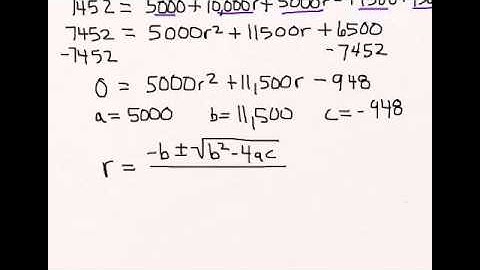 7452 = 5000+10,000r+5000r
7452 = 5000r²+11500r+6500
-7452 -7452
0 = 5000r²+11,500r -948
a=5000 b=11,500 c=-948
r = -b±√b²-4ac